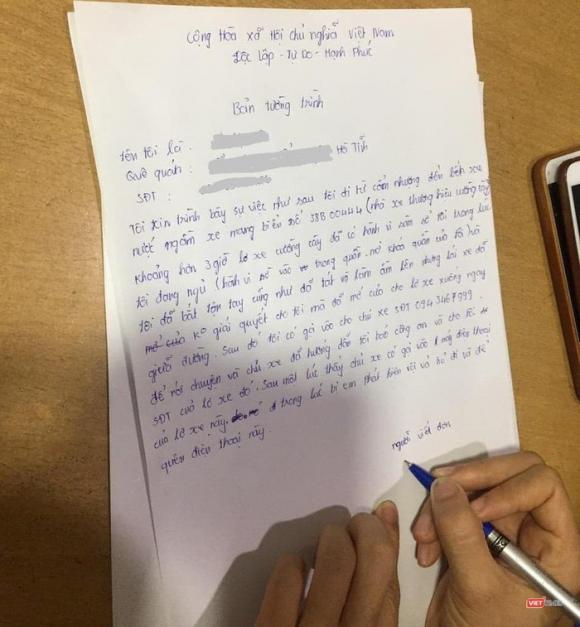 Cộng Hòa xã Hội chủ nghĩa Việt Nam
Độc lập - Tự Do - Hạnh Phúc
Bản tường trình
Tên tôi là :
Quê quán : Hà Tĩnh
SĐT :
Tôi xin trình bày sự việc như sau tôi đi từ cẩm nhượng đến bến xe
nước ngầm xe mang biển số 38B 00444 (nhà xe thương hiệu cường tây
khoảng hơn 3 giờ lơ xe cường cây đã có hành vi sàm sỡ tôi trong lúc
tôi đang ngủ (hành vi sờ vào trong quần. mở khóa quần của tôi) và
tôi đã bắt tận tay cũng như đã tát và làm ầm lên nhưng lái xe đã
ko giải quyết cho tôi mà đã mở cửa cho lơ xe xuống ngay
giữa đường. Sau đó tôi có gọi vào cho chủ xe SĐT 0943467999
để nói chuyện và chủ xe đã hướng dẫn tôi báo công an và cho tôi
SĐT của lơ xe đó. Sau một lúc thấy chủ xe có gọi vào 1 máy điện thoại
của lơ xe này. trong lúc bị em phát hiện vội và bỏ đi và để
quên điện thoại này.
người viết đơn
VIET